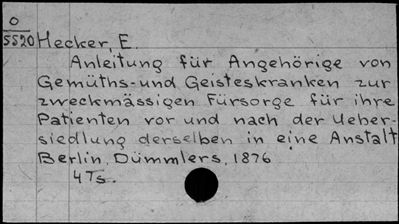 O
5520 Hecker, E.
Anleitung für Angehörige von
Gemüths- und Geisteskranken zur
zweckmässigen Fürsorge für ihre
Patienten vor und nach der Ueber-
siedlung derselben in eine Anstalt
Berlin, Dümmlers, 1876
4 Ts.